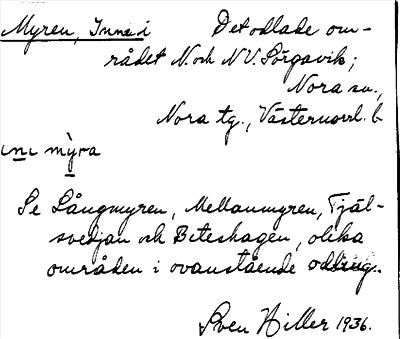 Myren, Inne i Det odlade om-
rådet N. och NV. Sörgavik;
Nora sn.,
Nora tg., Västernorrl. l.
ini mỳra
Se Långmyren, Mellanmyren, Tjäl-
svedjan och Biteshagen, olika
områden i ovanstående odling.
Sven Hiller 1936.